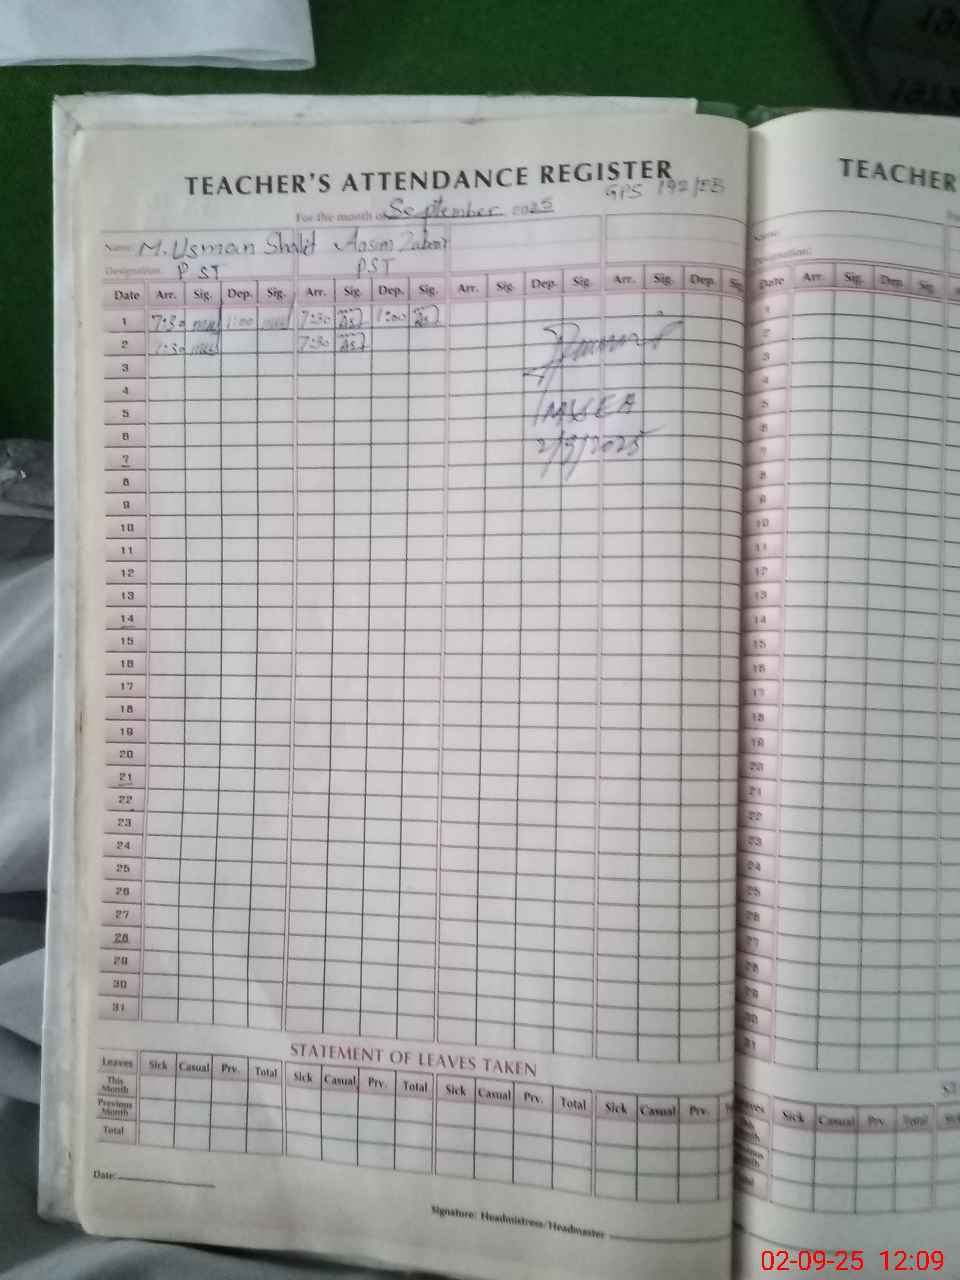 TEACHER'S ATTENDANCE REGISTER
GPS 192/EB
For the month of September 2025
Name: M. Usman Shahid Aasim Zahoor
Designation: PST PST
Date Arr. Sig. Dep. Sig. Arr. Sig. Dep. Sig. Arr. Sig. Dep. Sig. Arr. Sig. Dep. Sig.
1 7:30 1:00 7:30 1:00
2 7:30 7:30
3
4
5
6
7
8
9
10
11
12
13
14
15
16
17
18
19
20
21
22
23
24
25
26
27
28
29
30
31
2/9/2025
STATEMENT OF LEAVES TAKEN
Leaves Sick Casual Prv. Total Sick Casual Prv. Total Sick Casual Prv. Total Sick Casual Prv.
This Month
Previous Month
Total
Date:
Signature: Headmistress/Headmaster
TEACHER
Name:
Designation:
Date Arr. Sig. Dep. Sig.
1
2
3
4
5
6
7
8
9
10
11
12
13
14
15
16
17
18
19
20
21
22
23
24
25
26
27
28
29
30
31
Sick Casual Prv. Total
02-09-25 12:09